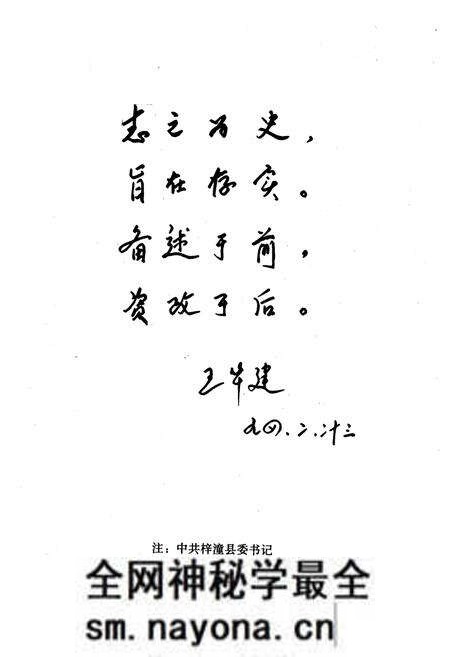 志之为史，
旨在存实。
备述于前，
资政于后。
王华建
九四.六.廿三
注：中共梓潼县委书记
全网神秘学最全
sm.nayona.cn